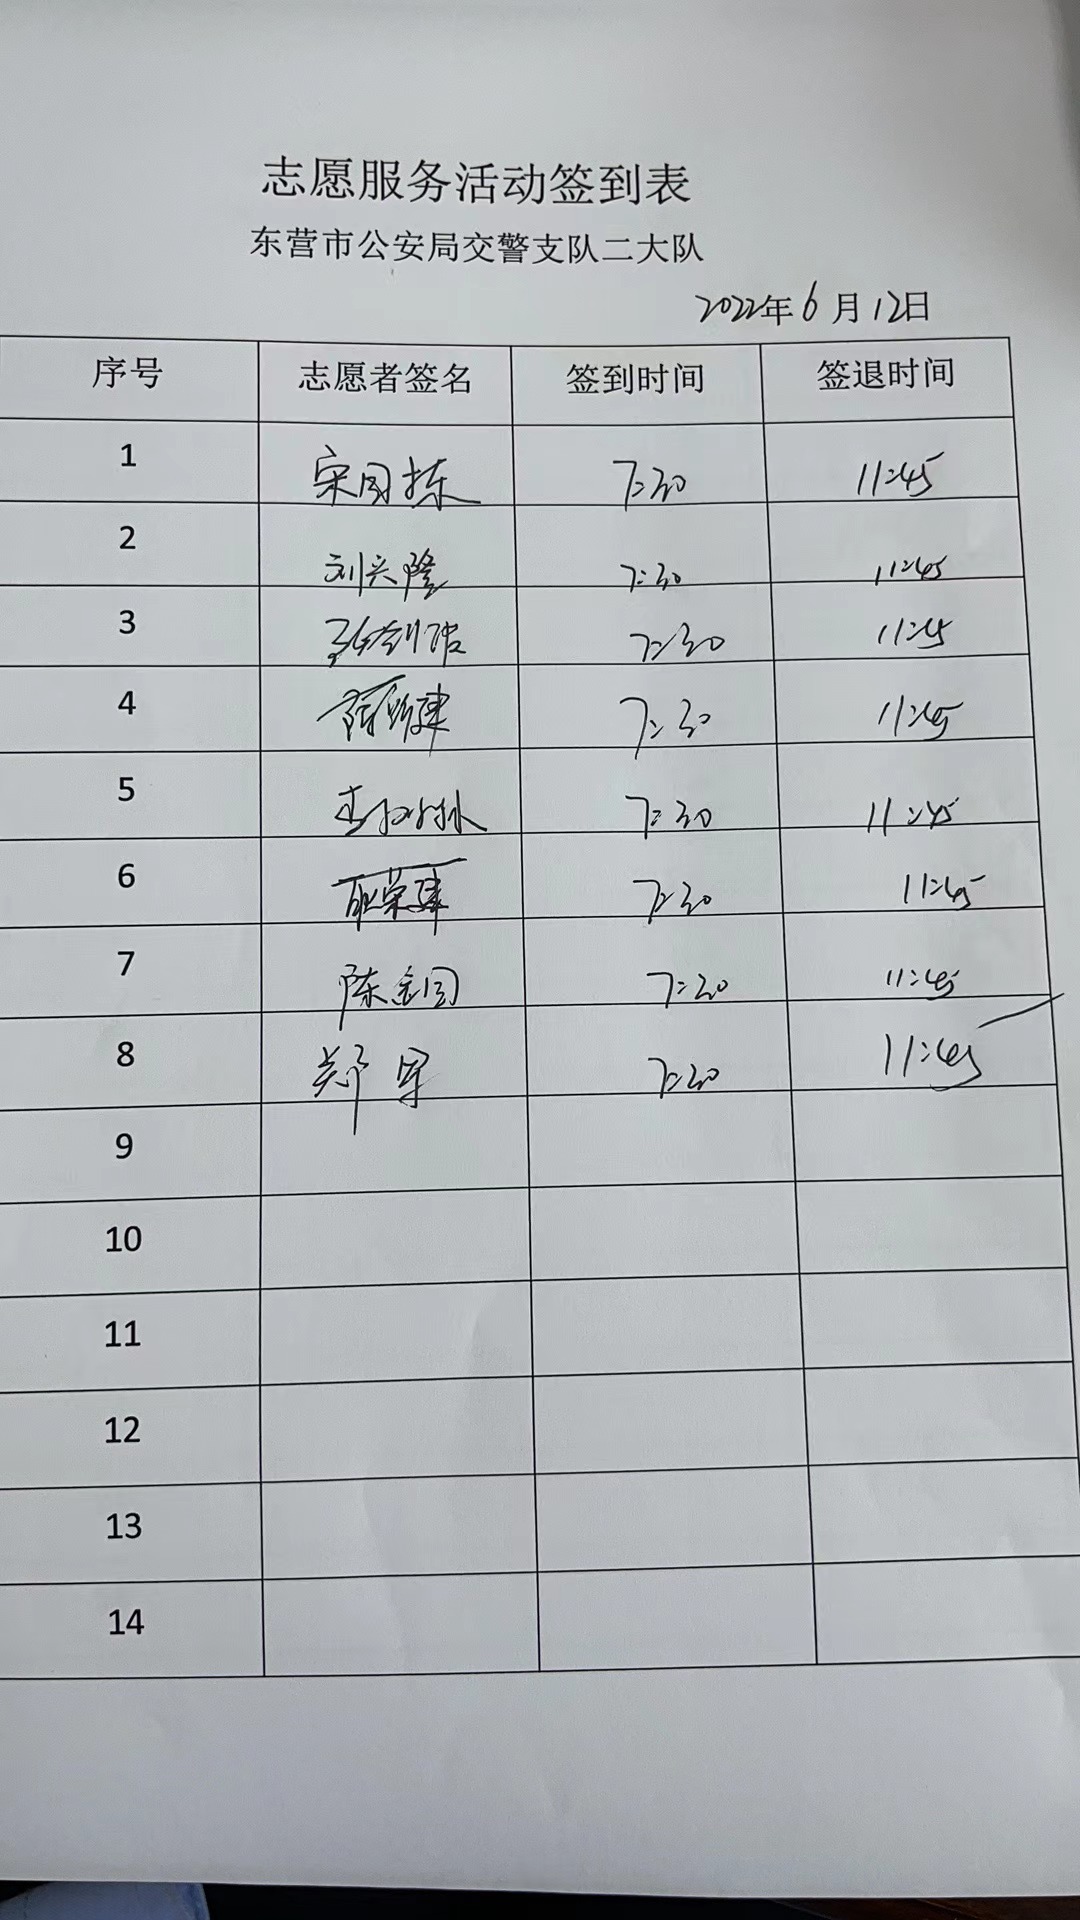 志愿服务活动签到表
东营市公安局交警支队二大队
2022年6月12日
序号 志愿者签名 签到时间 签退时间
1 宋国栋 7:30 11:45
2 刘兴隆 7:30 11:45
3 7:30 11:45
4 7:30 11:45
5 7:30 11:45
6 耿荣建 7:30 11:45
7 陈金国 7:30 11:45
8 郑军 7:30 11:45
9
10
11
12
13
14